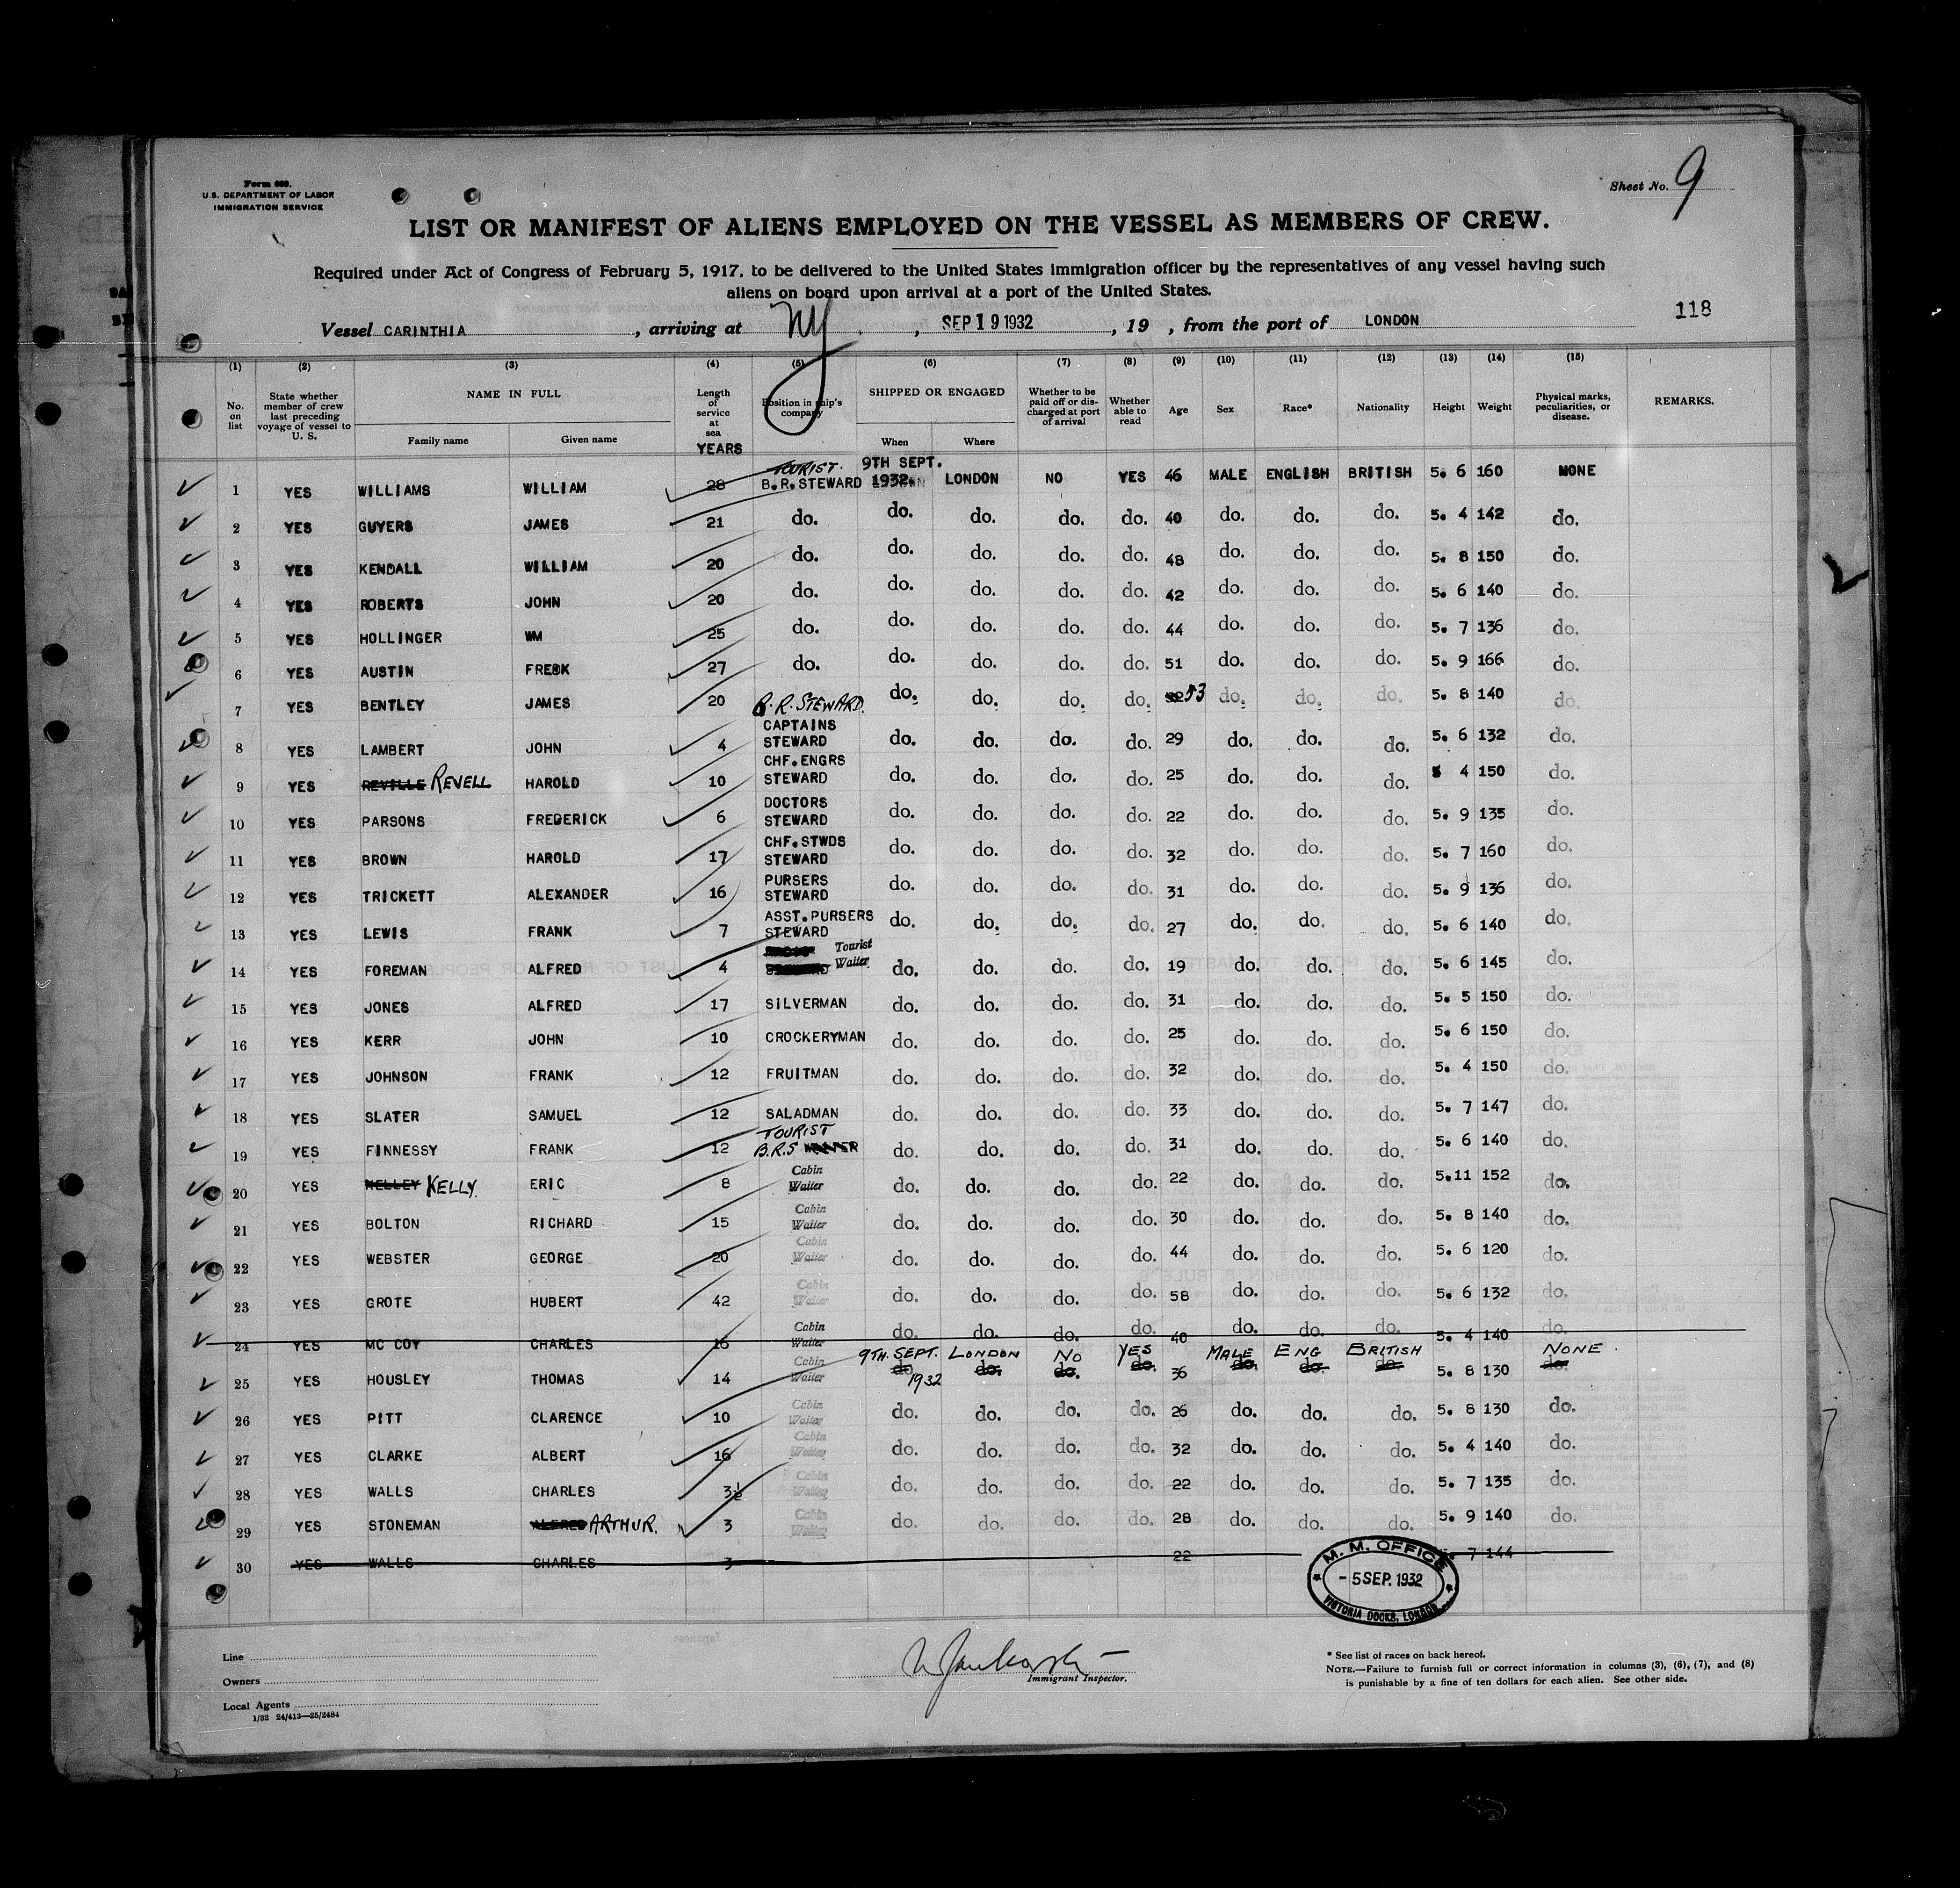 Form 680.
U.S. DEPARTMENT OF LABOR
IMMIGRATION SERVICE
Sheet No. 9
LIST OR MANIFEST OF ALIENS EMPLOYED ON THE VESSEL AS MEMBERS OF CREW.
Required under Act of Congress of February 5, 1917, to be delivered to the United States immigration officer by the representatives of any vessel having such
aliens on board upon arrival at a port of the United States.
118
Vessel CARINTHIA, arriving at NY, SEP 19 1932, 19 , from the port of LONDON
(1) (2) (3) (4) (5) (6) (7) (8) (9) (10) (11) (12) (13) (14) (15)
No. on list State whether member of crew last preceding voyage of vessel to U. S. NAME IN FULL Family name Given name Length of service at sea YEARS Position in ship's company SHIPPED OR ENGAGED When Where Whether to be paid off or discharged at port of arrival Whether able to read Age Sex Race* Nationality Height Weight Physical marks, peculiarities, or disease. REMARKS.
1 YES WILLIAMS WILLIAM 28 TOURIST. B.R.STEWARD 9TH SEPT. 1932. LONDON NO YES 46 MALE ENGLISH BRITISH 5. 6 160 MONE
2 YES GUYERS JAMES 21 do. do. do. do. do. 40 do. do. do. 5. 4 142 do.
3 YES KENDALL WILLIAM 20 do. do. do. do. do. 48 do. do. do. 5. 8 150 do.
4 YES ROBERTS JOHN 20 do. do. do. do. do. 42 do. do. do. 5. 6 140 do.
5 YES HOLLINGER WM 25 do. do. do. do. do. 44 do. do. do. 5. 7 136 do.
6 YES AUSTIN FREDK 27 do. do. do. do. do. 51 do. do. do. 5. 9 166 do.
7 YES BENTLEY JAMES 20 B.R.STEWARD. do. do. do. do. 53 do. do. do. 5. 8 140 do.
8 YES LAMBERT JOHN 4 CAPTAINS STEWARD do. do. do. do. 29 do. do. do. 5. 6 132 do.
9 YES REVILLE REVELL HAROLD 10 CHF.ENGRS STEWARD do. do. do. do. 25 do. do. do. 5 4 150 do.
10 YES PARSONS FREDERICK 6 DOCTORS STEWARD do. do. do. do. 22 do. do. do. 5. 9 135 do.
11 YES BROWN HAROLD 17 CHF.STWDS STEWARD do. do. do. do. 32 do. do. do. 5. 7 160 do.
12 YES TRICKETT ALEXANDER 16 PURSERS STEWARD do. do. do. do. 31 do. do. do. 5. 9 136 do.
13 YES LEWIS FRANK 7 ASST.PURSERS STEWARD do. do. do. do. 27 do. do. do. 5. 6 140 do.
14 YES FOREMAN ALFRED 4 Tourist Waiter do. do. do. do. 19 do. do. do. 5. 6 145 do.
15 YES JONES ALFRED 17 SILVERMAN do. do. do. do. 31 do. do. do. 5. 5 150 do.
16 YES KERR JOHN 10 CROCKERYMAN do. do. do. do. 25 do. do. do. 5. 6 150 do.
17 YES JOHNSON FRANK 12 FRUITMAN do. do. do. do. 32 do. do. do. 5. 4 150 do.
18 YES SLATER SAMUEL 12 SALADMAN do. do. do. do. 33 do. do. do. 5. 7 147 do.
19 YES FINNESSY FRANK 12 TOURIST B.R.S WAITER do. do. do. do. 31 do. do. do. 5. 6 140 do.
20 YES KELLEY KELLY. ERIC 8 Cabin Waiter do. do. do. do. 22 do. do. do. 5.11 152 do.
21 YES BOLTON RICHARD 15 Cabin Waiter do. do. do. do. 30 do. do. do. 5. 8 140 do.
22 YES WEBSTER GEORGE 20 Cabin Waiter do. do. do. do. 44 do. do. do. 5. 6 120 do.
23 YES GROTE HUBERT 42 Cabin Waiter do. do. do. do. 58 do. do. do. 5. 6 132 do.
24 YES MC COY CHARLES 16 Cabin Waiter do. do. do. do. 40 do. do. do. 5. 4 140 do.
25 YES HOUSLEY THOMAS 14 Cabin Waiter 9TH. SEPT. do. 1932 LONDON do. NO do. YES do. 36 MALE do. ENG do. BRITISH do. 5. 8 130 NONE. do.
26 YES PITT CLARENCE 10 Cabin Waiter do. do. do. do. 26 do. do. do. 5. 8 130 do.
27 YES CLARKE ALBERT 16 Cabin Waiter do. do. do. do. 32 do. do. do. 5. 4 140 do.
28 YES WALLS CHARLES 3½ Cabin Waiter do. do. do. do. 22 do. do. do. 5. 7 135 do.
29 YES STONEMAN ALFRED ARTHUR. 3 Cabin Waiter do. do. do. do. 28 do. do. do. 5. 9 140 do.
30 YES WALLS CHARLES 3 22 7 144
M. M. OFFICE
- 5 SEP. 1932
VICTORIA DOCKS, LONDON
Line
Owners
Local Agents
1/32 24/413—25/2484
Immigrant Inspector.
* See list of races on back hereof.
NOTE.—Failure to furnish full or correct information in columns (3), (6), (7), and (8)
is punishable by a fine of ten dollars for each alien. See other side.